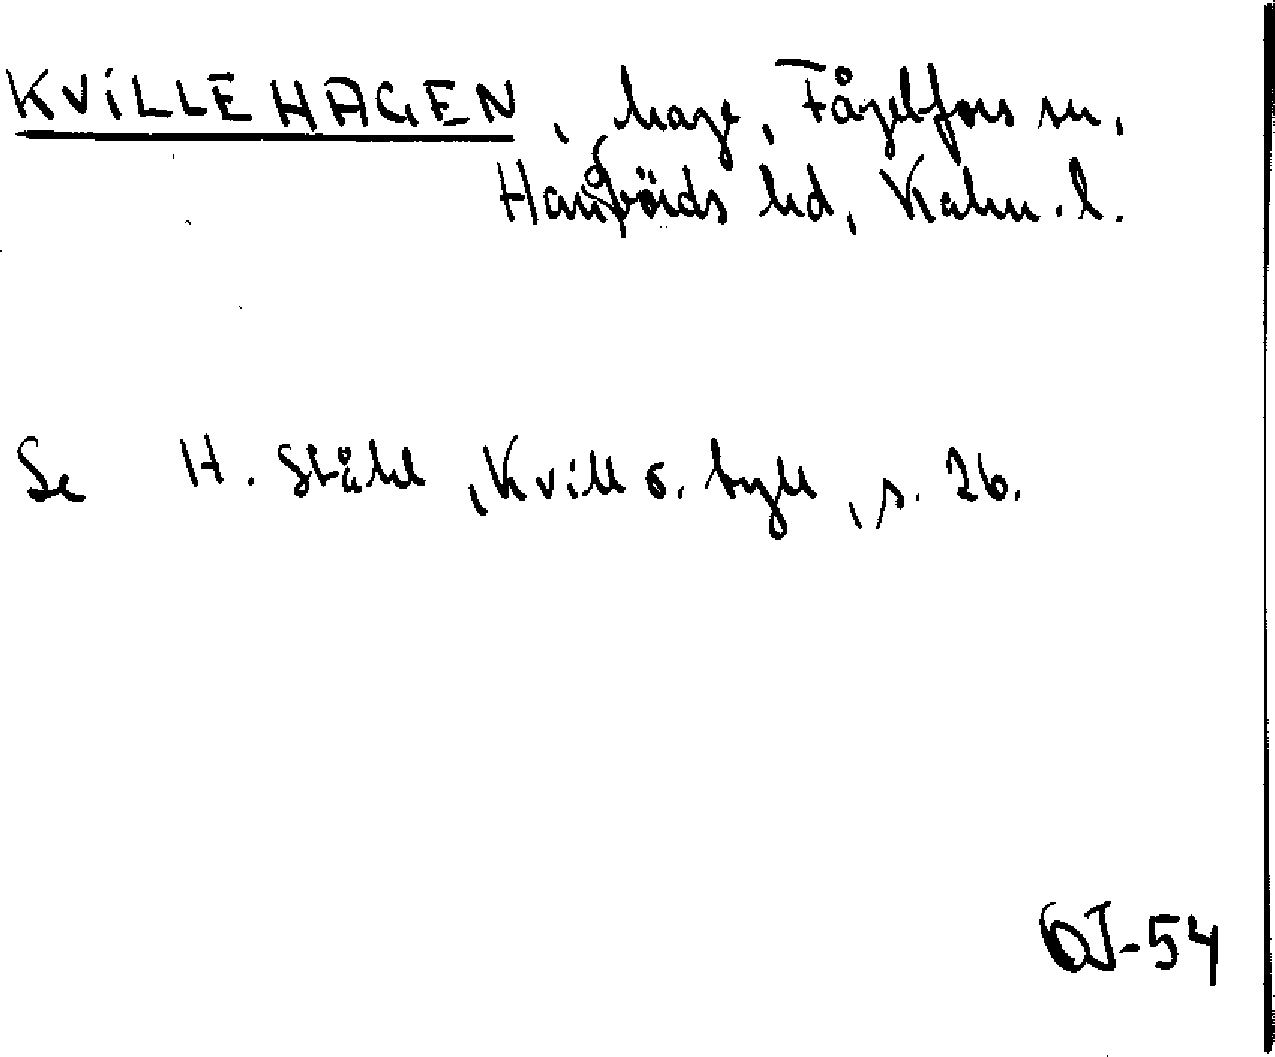 KVILLEHAGEN, hage, Fågelfors sn,
Handbörds hd, Kalm. l.
Se H. Ståhl, Kvill o. tyll, s. 26.
OJ-54